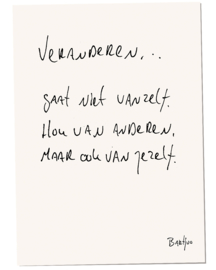 VERANDEREN...
gaat niet vanzelf.
Hou van anderen,
maar ook van jezelf.